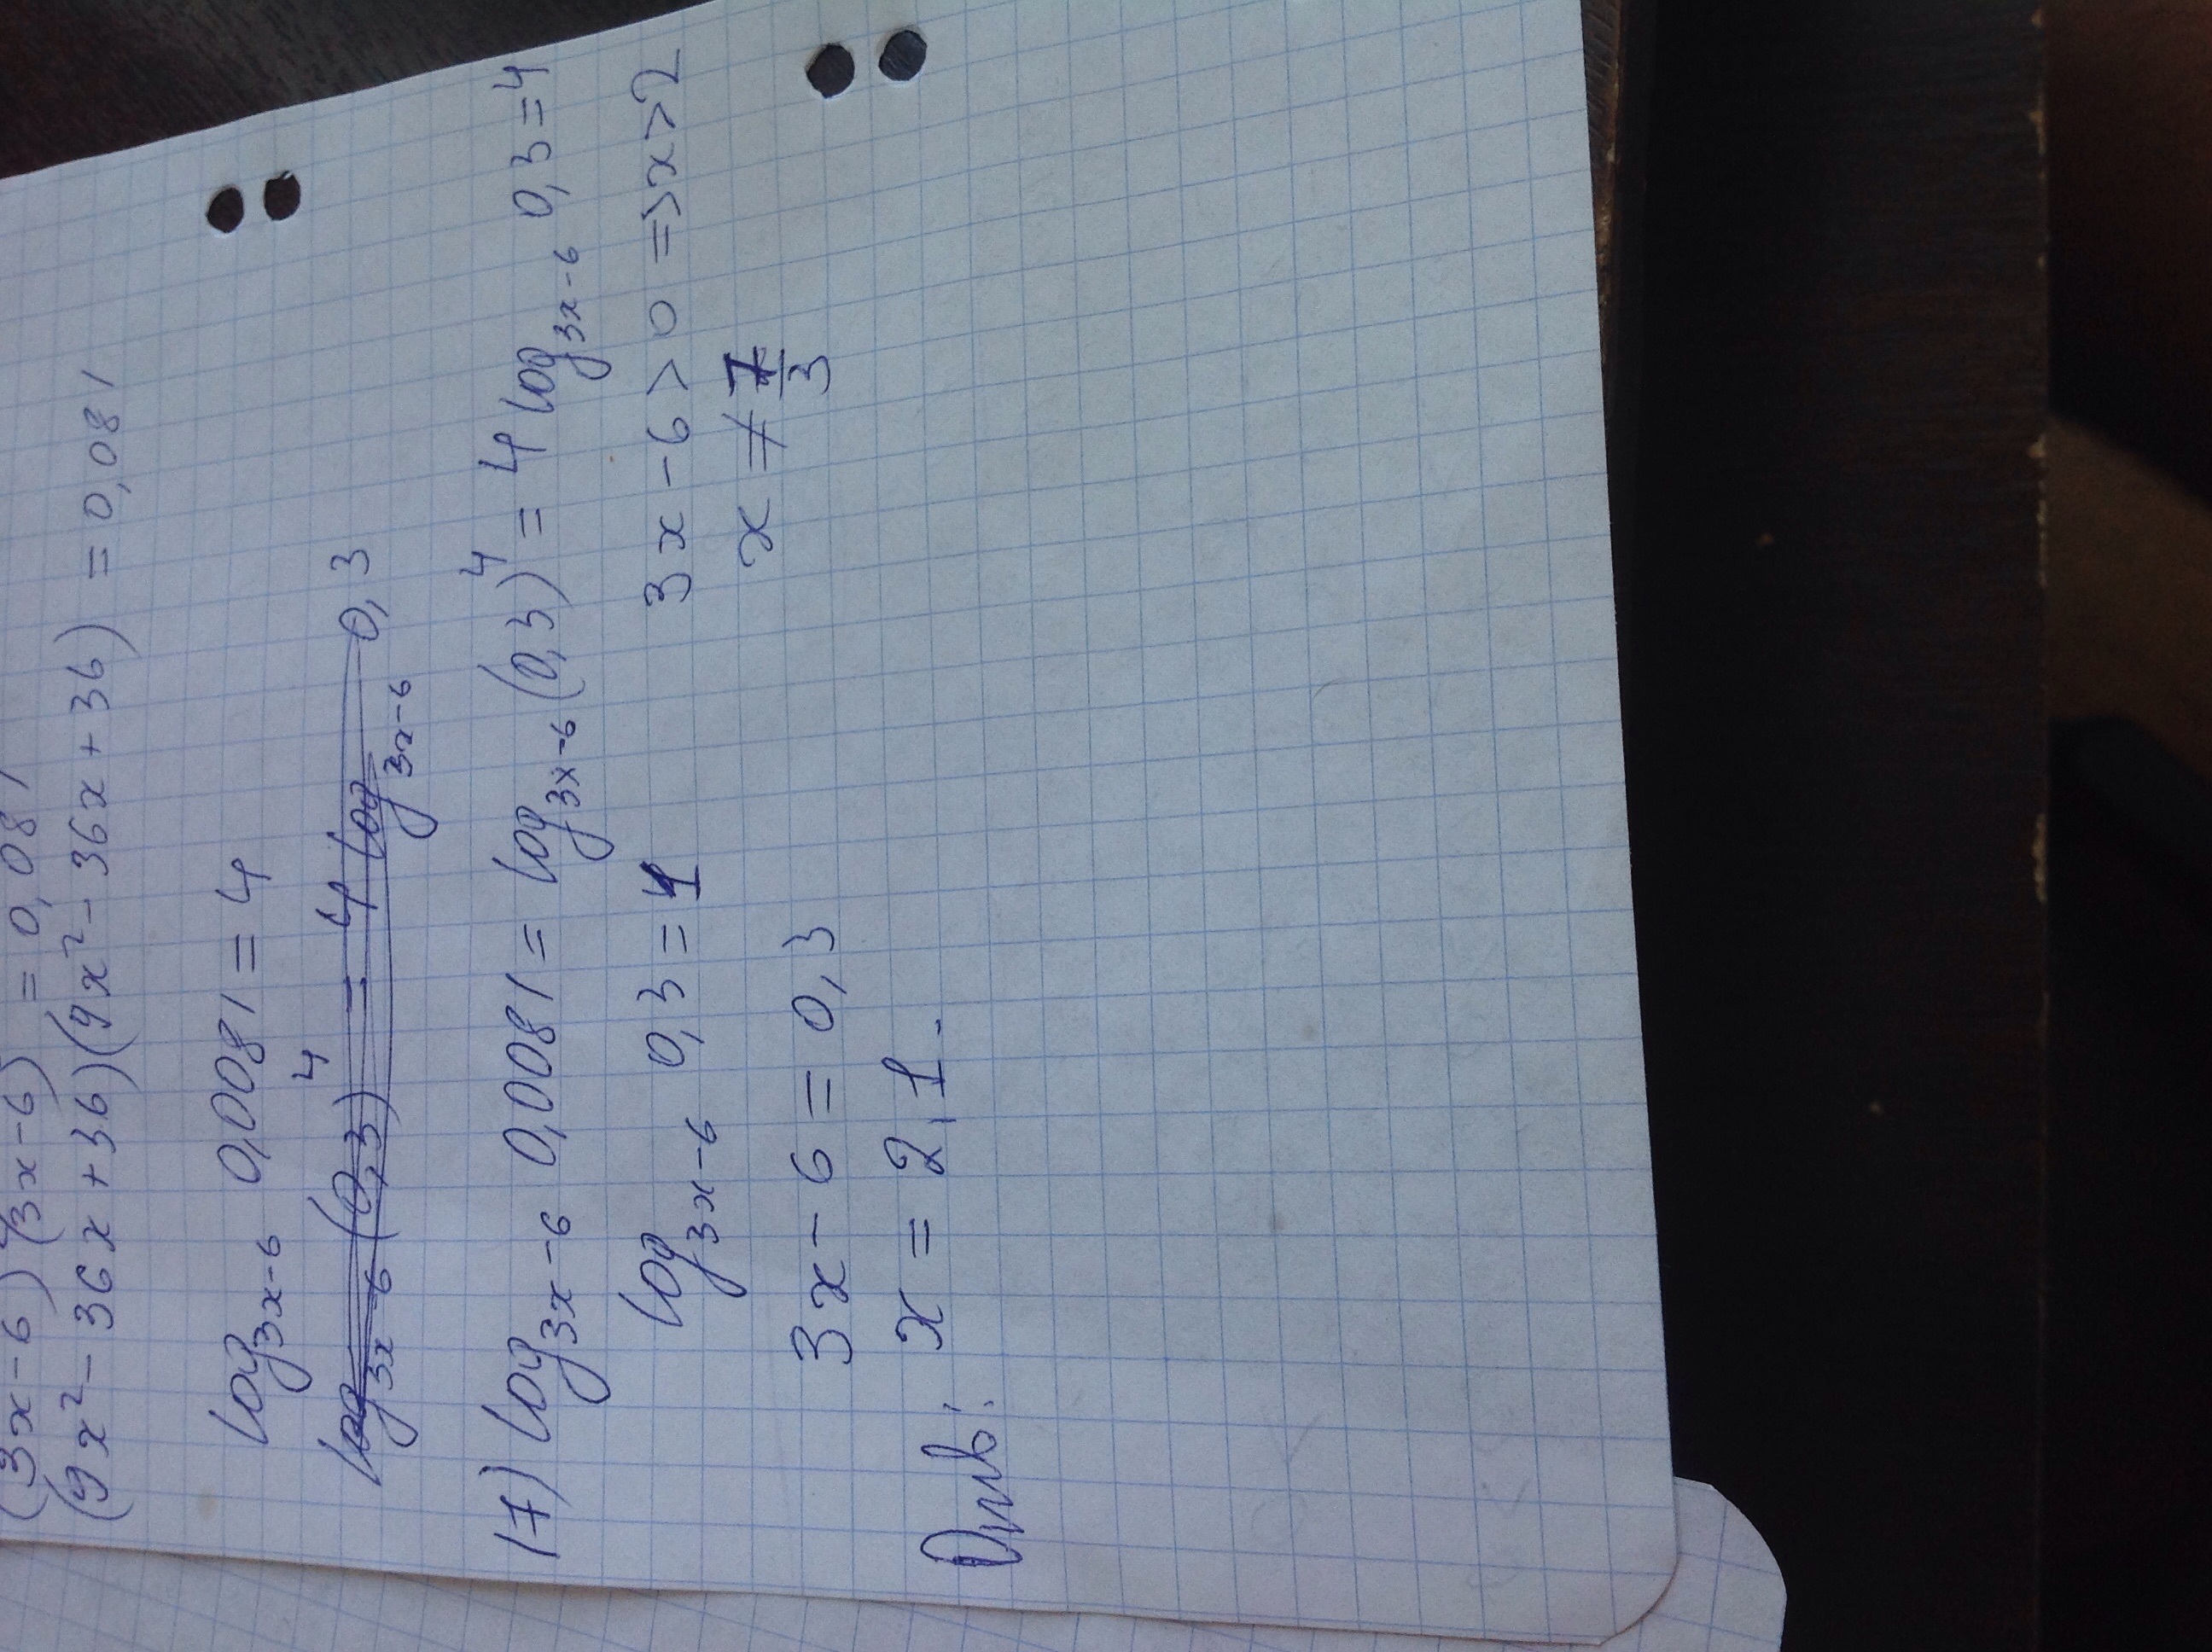 (3x-6)(3x-6) = 0,081
(9x²-36x+36)(9x²-36x+36) = 0,081
log₃ₓ₋₆ 0,0081 = 4
log₃ₓ₋₆ (0,3)⁴ = 4 log₃ₓ₋₆ 0,3
17) log₃ₓ₋₆ 0,0081 = log₃ₓ₋₆ (0,3)⁴ = 4 log₃ₓ₋₆ 0,3 = 4
log₃ₓ₋₆ 0,3 = 1 3x-6>0 => x>2
x ≠ 7/3
3x-6 = 0,3
Отв: x = 2,1.